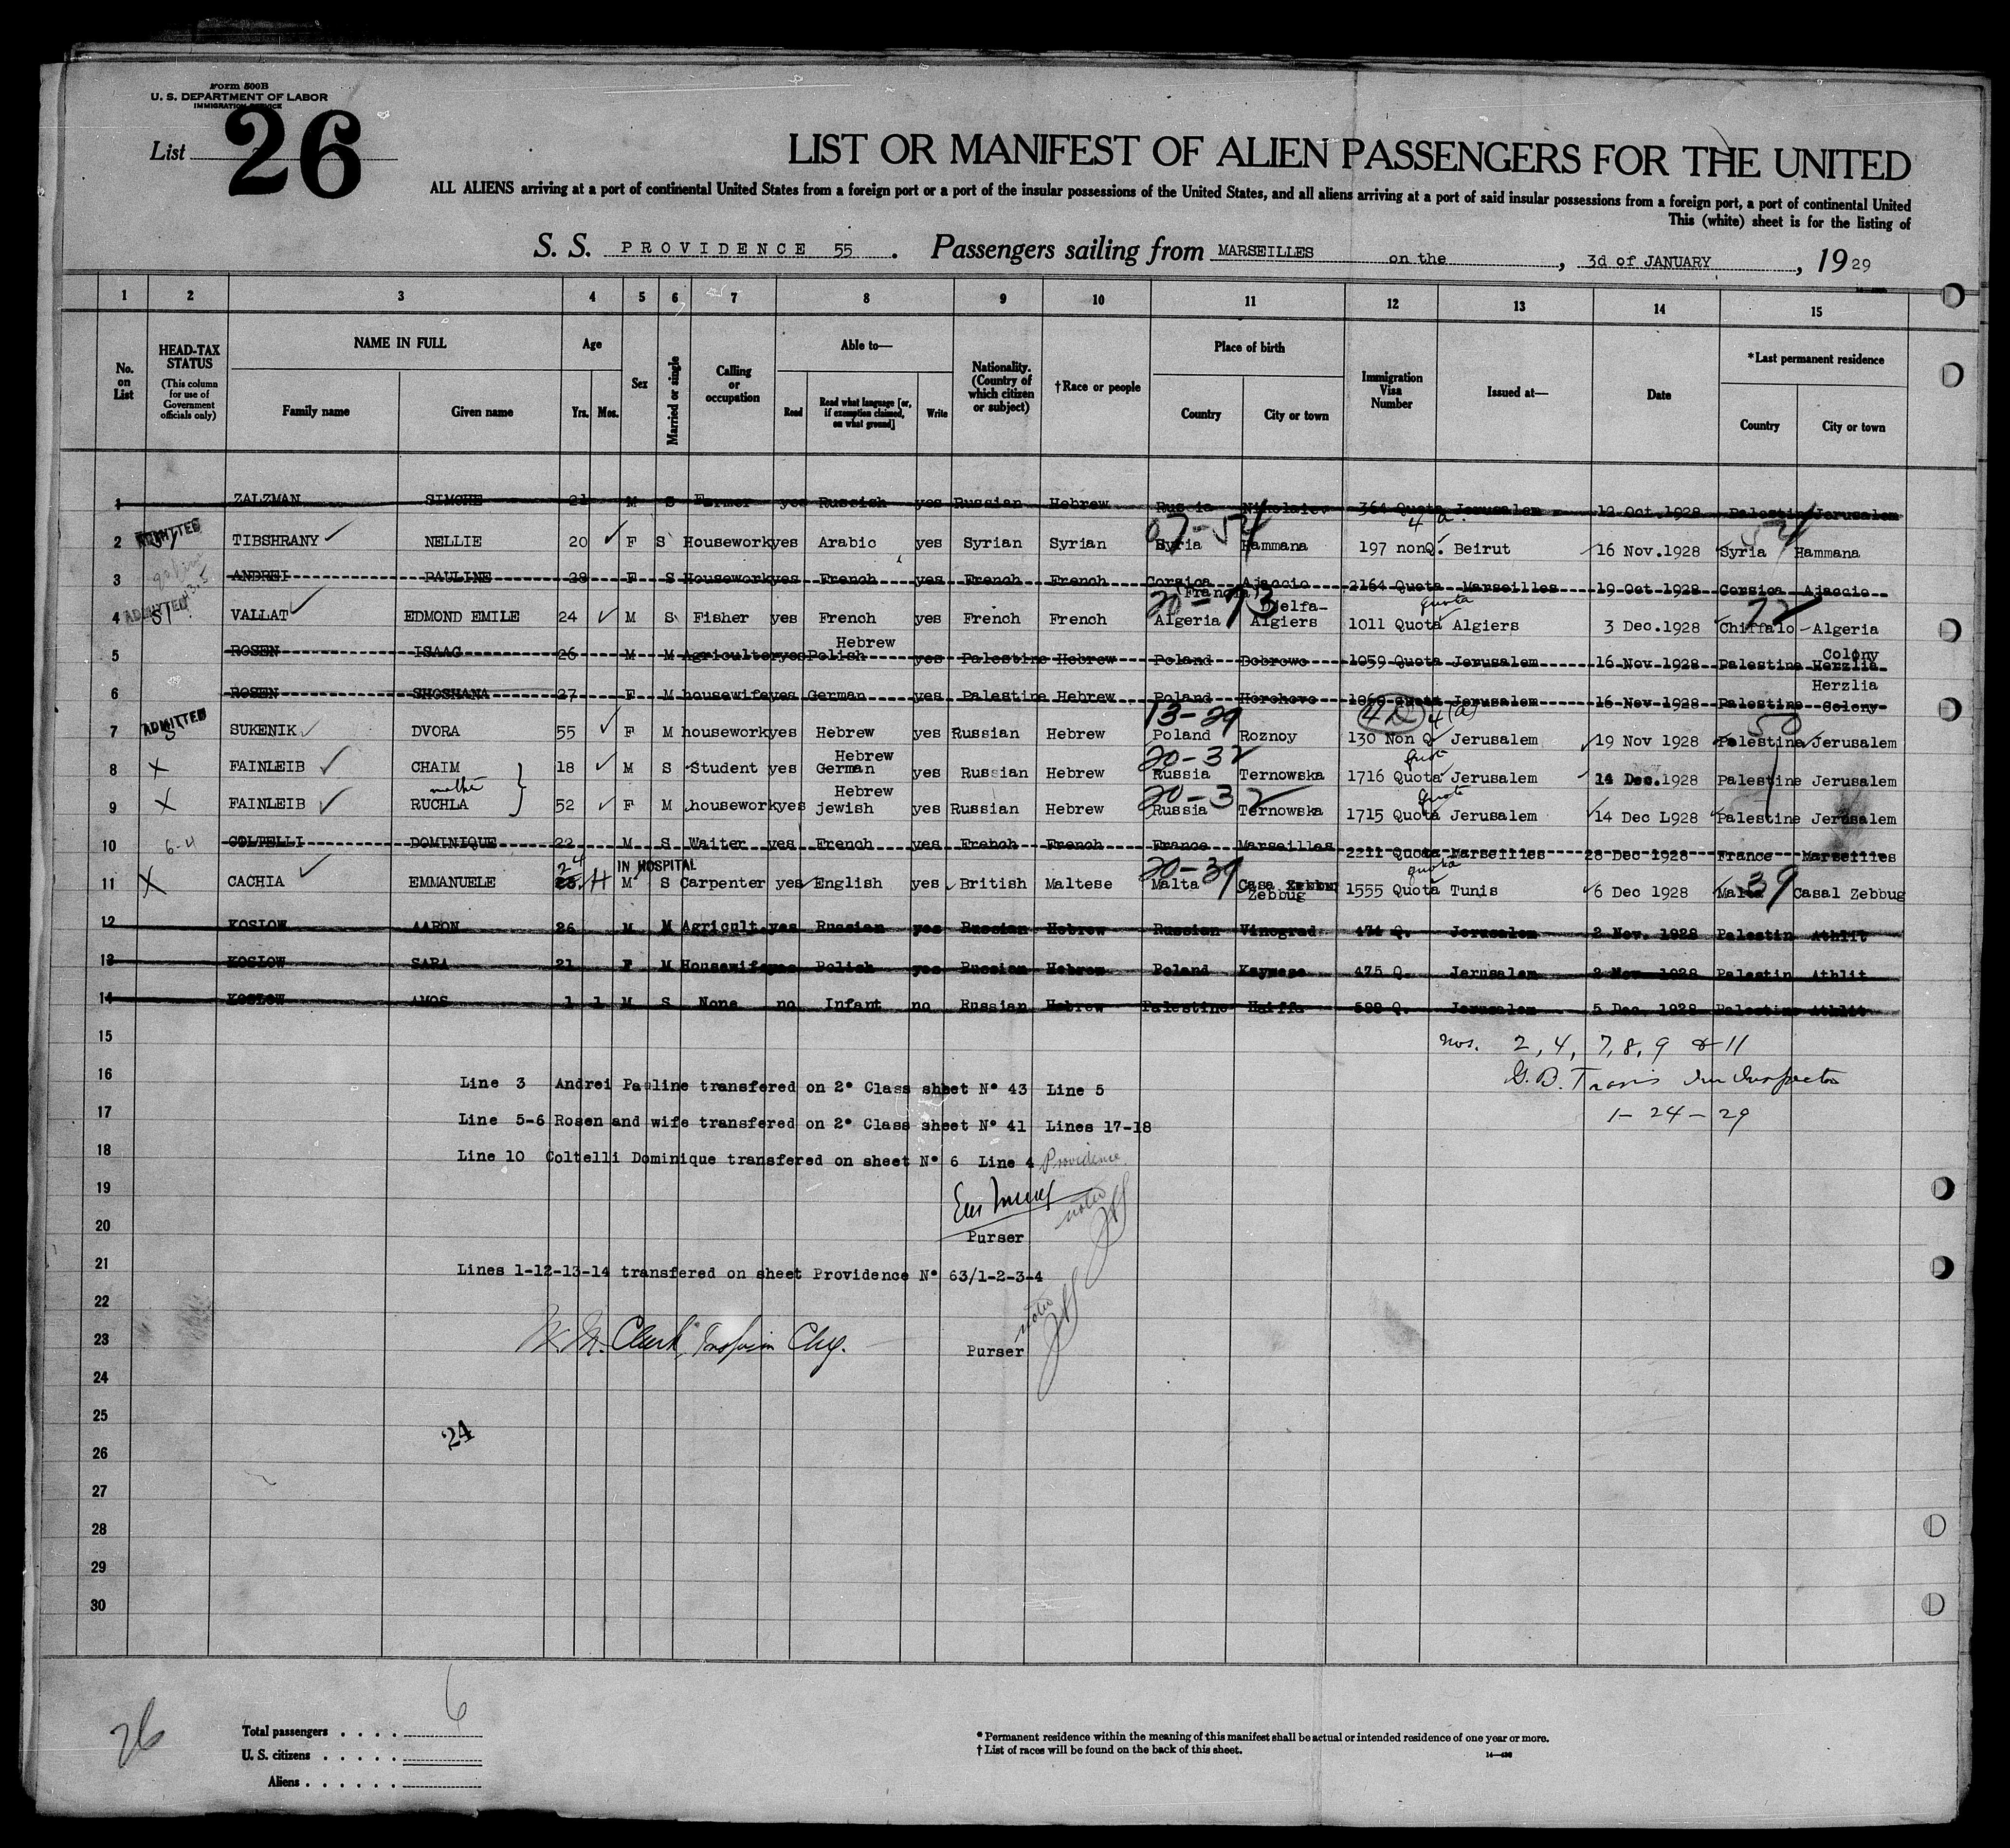 Form 500B
U. S. DEPARTMENT OF LABOR
IMMIGRATION SERVICE
List 26
LIST OR MANIFEST OF ALIEN PASSENGERS FOR THE UNITED
ALL ALIENS arriving at a port of continental United States from a foreign port or a port of the insular possessions of the United States, and all aliens arriving at a port of said insular possessions from a foreign port, a port of continental United
This (white) sheet is for the listing of
S. S. PROVIDENCE 55 . Passengers sailing from MARSEILLES on the , 3d of JANUARY , 1929
1 2 3 4 5 6 7 8 9 10 11 12 13 14 15
No. on List
HEAD-TAX STATUS (This column for use of Government officials only)
NAME IN FULL
Family name Given name
Age
Yrs. Mos.
Sex
Married or single
Calling or occupation
Able to—
Read Read what language [or, if exemption claimed, on what ground] Write
Nationality. (Country of which citizen or subject)
†Race or people
Place of birth
Country City or town
Immigration Visa Number
Issued at—
Date
*Last permanent residence
Country City or town
1 ZALZMAN SIMCHE 21 M S Farmer yes Russish yes Russian Hebrew Russia Nikolaiev 364 Quota Jerusalem 12 Oct.1928 Palestin Jerusalem
07-54 4 a 54
2 ADMITTED TIBSHRANY NELLIE 20 F S Housework yes Arabic yes Syrian Syrian Syria Hammana 197 nonQ. Beirut 16 Nov.1928 Syria Hammana
3 ANDREI PAULINE 28 F S Housework yes French yes French French Corsica Ajaccio 2164 Quota Marseilles 19 Oct.1928 Corsica Ajaccio
(Francia)
20-73 Djelfa- quota 72
4 ADMITTED VALLAT EDMOND EMILE 24 M S Fisher yes French yes French French Algeria Algiers 1011 Quota Algiers 3 Dec.1928 Chiffalo-Algeria
Hebrew Colony
5 ROSEN ISAAC 26 M M Agriculter yes Polish yes Palestine Hebrew Poland Dobrowo 1059 Quota Jerusalem 16 Nov.1928 Palestine Herzlia
Herzlia
6 ROSEN SHOSHANA 27 F M housewife yes German yes Palestine Hebrew Poland Horchovo 1060 Quota Jerusalem 16 Nov.1928 Palestine Colony
13-29 4 (a) 50
7 ADMITTED SUKENIK DVORA 55 F M housework yes Hebrew yes Russian Hebrew Poland Roznoy 130 Non Q Jerusalem 19 Nov 1928 Palestine Jerusalem
Hebrew 20-32 Quota
8 X FAINLEIB CHAIM 18 M S Student yes German yes Russian Hebrew Russia Ternowska 1716 Quota Jerusalem 14 Dec.1928 Palestine Jerusalem
mother Hebrew 20-32 Quota
9 X FAINLEIB RUCHLA 52 F M housework yes jewish yes Russian Hebrew Russia Ternowska 1715 Quota Jerusalem 14 Dec L928 Palestine Jerusalem
10 6-4 COLTELLI DOMINIQUE 22 M S Waiter yes French yes French French France Marseilles 2211 Quota Marseilles 28 Dec 1928 France Marseilles
24 IN HOSPITAL 20-39 quota 39
11 X CACHIA EMMANUELE 25 H M S Carpenter yes English yes British Maltese Malta Casa Zebbug 1555 Quota Tunis 6 Dec 1928 Malta Casal Zebbug
12 KOSLOW AARON 26 M M Agricult. yes Russian yes Russian Hebrew Russian Vinograd 474 Q. Jerusalem 2 Nov. 1928 Palestin Athlit
13 KOSLOW SARA 21 F M Housewife yes Polish yes Russian Hebrew Poland 475 Q. Jerusalem 2 Nov 1928 Palestin Athlit
14 KOSLOW AMOS 1 1 M S None no Infant no Russian Hebrew Palestine Haiffa 588 Q. Jerusalem 5 Dec. 1928 Palestine Athlit
15 nos. 2, 4, 7, 8, 9 & 11
16 Line 3 Andrei Pauline transfered on 2° Class sheet N° 43 Line 5
G. B. Travis Imm Inspector
17 Line 5-6 Rosen and wife transfered on 2° Class sheet N° 41 Lines 17-18
1-24-29
18 Line 10 Coltelli Dominique transfered on sheet N° 6 Line 4 Providence
19
noted
20 Purser
21 Lines 1-12-13-14 transfered on sheet Providence N° 63/1-2-3-4
22
noted
23 Clark, Purser
24
25
24
26
27
28
29
30
26
6
Total passengers . . . .
U. S. citizens . . . . .
Aliens . . . . . .
* Permanent residence within the meaning of this manifest shall be actual or intended residence of one year or more.
† List of races will be found on the back of this sheet.